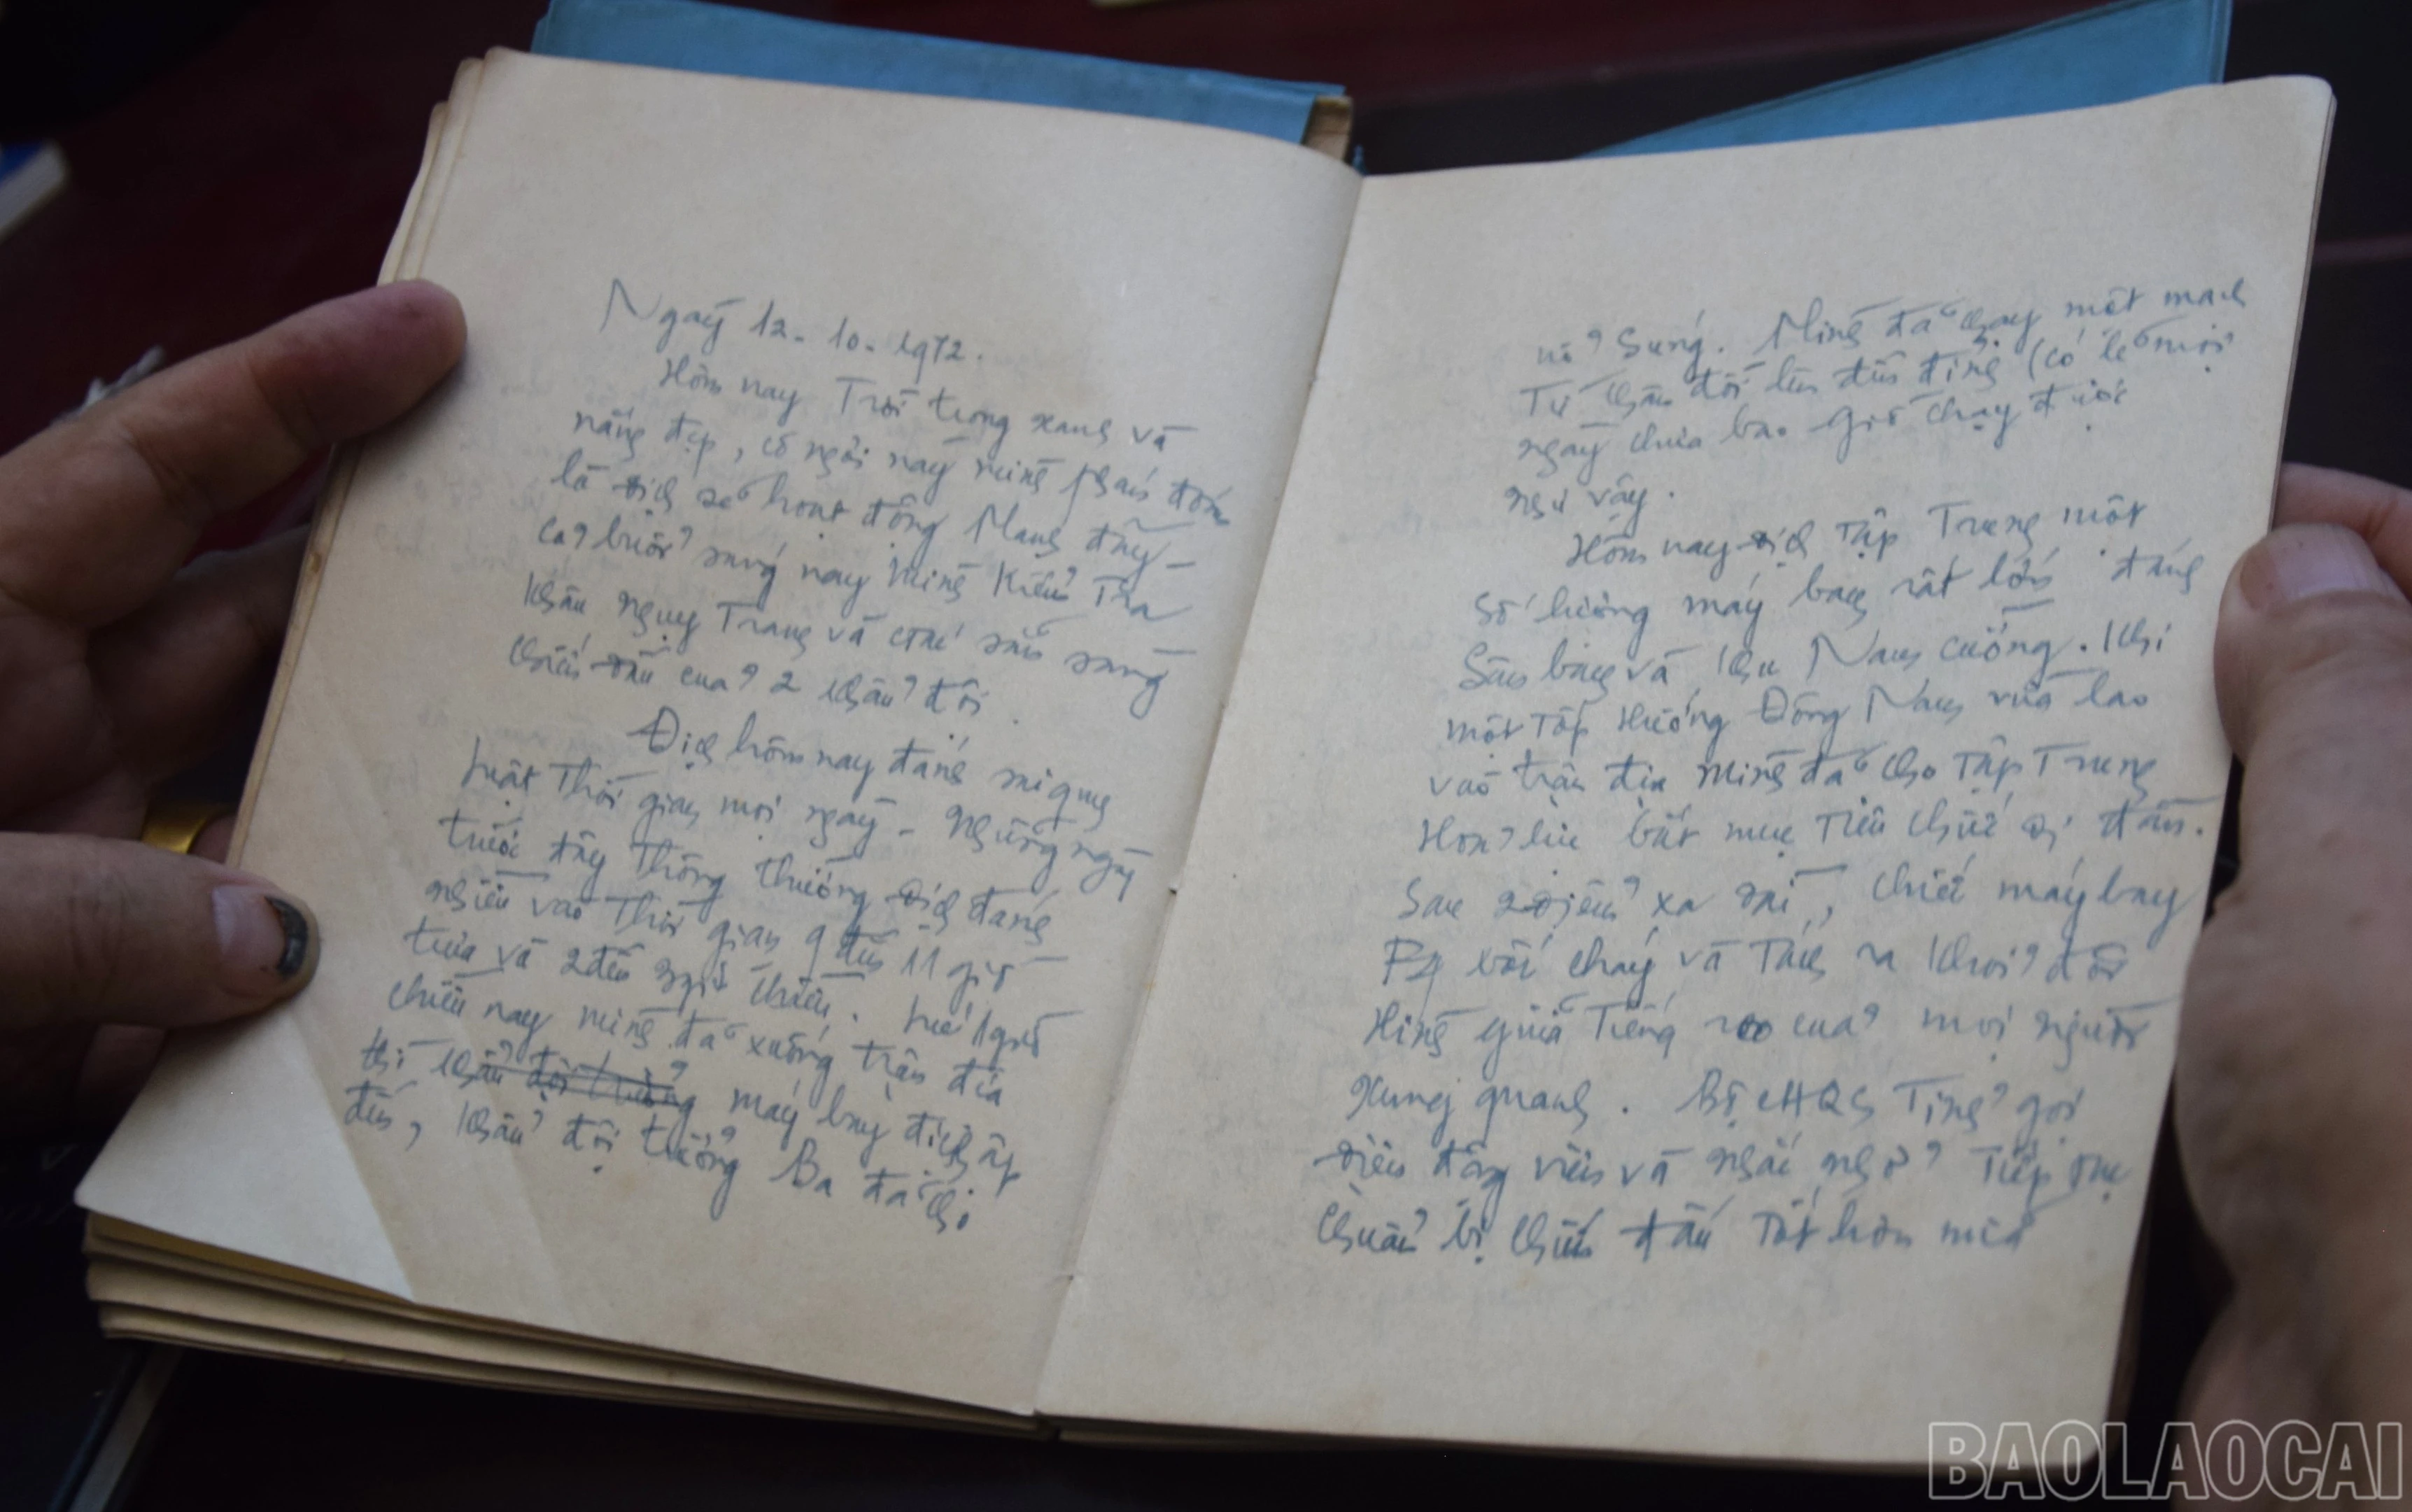 Ngày 12-10-1972.
Hôm nay Trời trong xanh và
nắng đẹp, cỡ ngời này mình phán đoán
là địch sẽ hoạt động Mạnh đây -
cả buổi sáng nay Mình Kiểm Tra
khâu ngụy Trang và sẵn sàng
chiến đấu của 2 khẩu đội.
Địch hôm nay đánh
luật Thời gian mọi ngày - những ngày
trước đây Thông thường địch đánh
nhiều vào Thời gian 9 đến 11 giờ
trưa và 2 đến 3 giờ chiều. Lúc 1 giờ
chiều nay mình đã xuống trận địa
thì khẩu đội trưởng máy bay địch ập
đến, khẩu đội trưởng Ba đã cho
nổ Súng. Mình đã chạy một mạch
Từ chân đồi lên đến đỉnh (có lẽ mọi
ngày chưa bao giờ chạy được
như vậy.
Hôm nay địch Tập Trung một
Số lượng máy bay rất lớn đánh
Sân bay và khu Nam cường. Khi
một Tốp Hướng Đông Nam vừa lao
vào trận địa Mình đã cho Tập Trung
Hoả lực bắt mục Tiêu chiếc đi đầu.
Sau 2 điểm xạ dài, chiếc máy bay
F4 bốc cháy và Tách ra khỏi đội
Hình giữa Tiếng reo của mọi người
xung quanh. Bộ CHQS Tỉnh gọi
điện động viên và nhắc nhở Tiếp tục
chuẩn bị chiến đấu Tốt hơn nữa